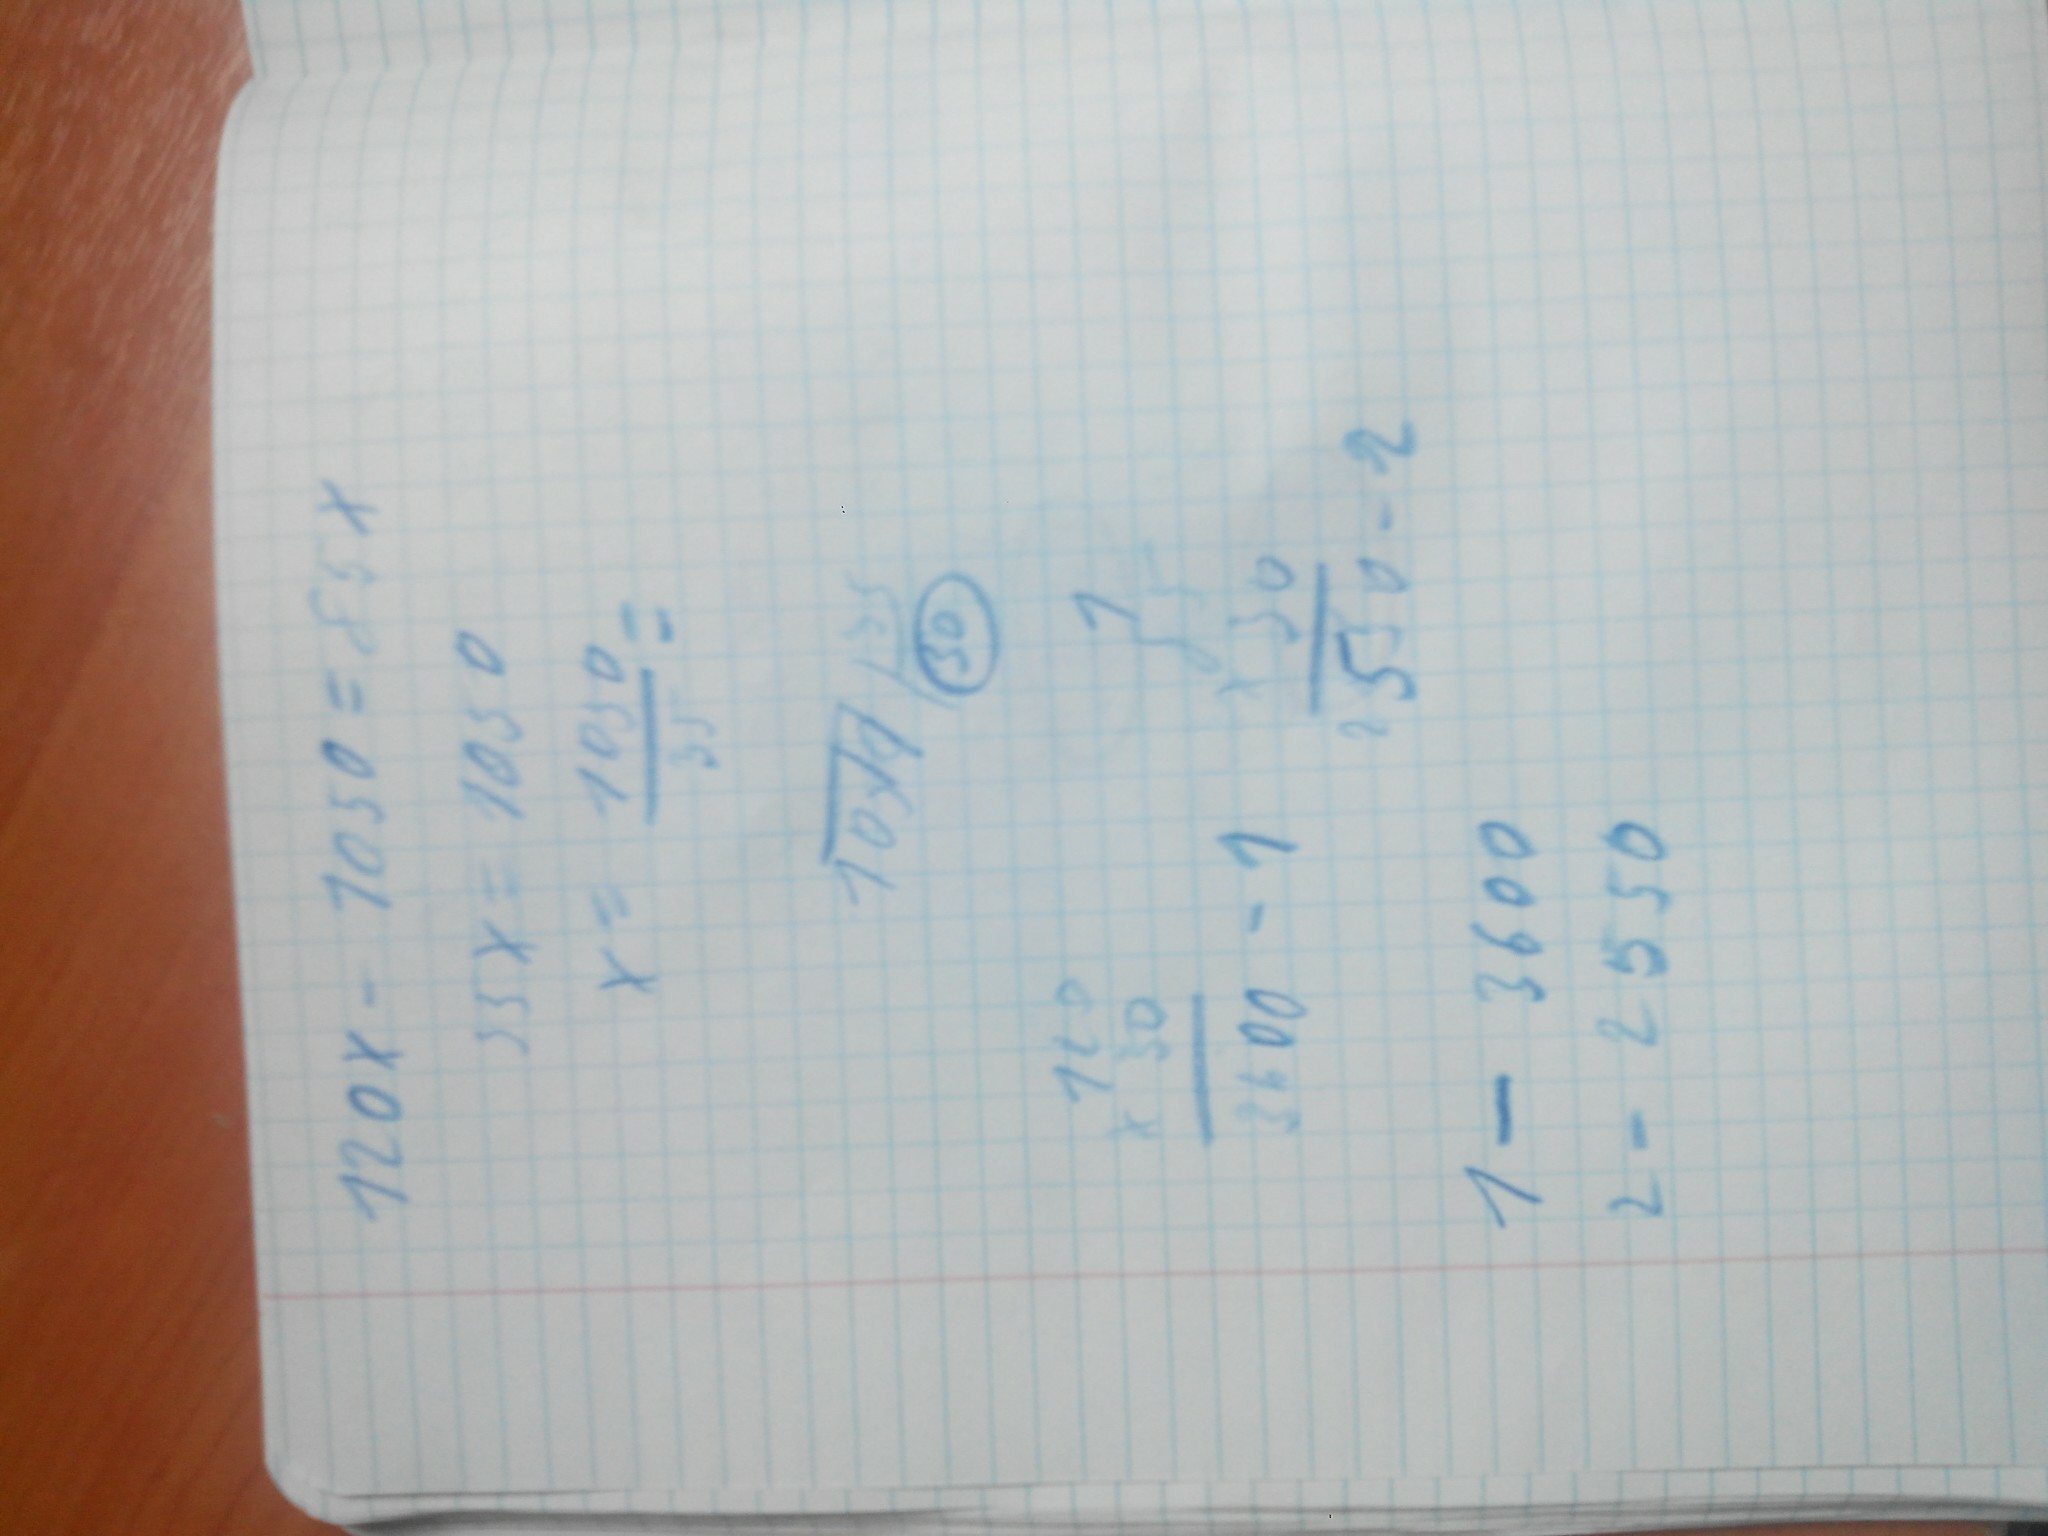 120x - 1050 = 85x
35x = 1050
x = 1050 =
35
1050 35
30
120
x 30
3600 - 1
85
x 30
2550 - 2
1 - 3600
2 - 2550